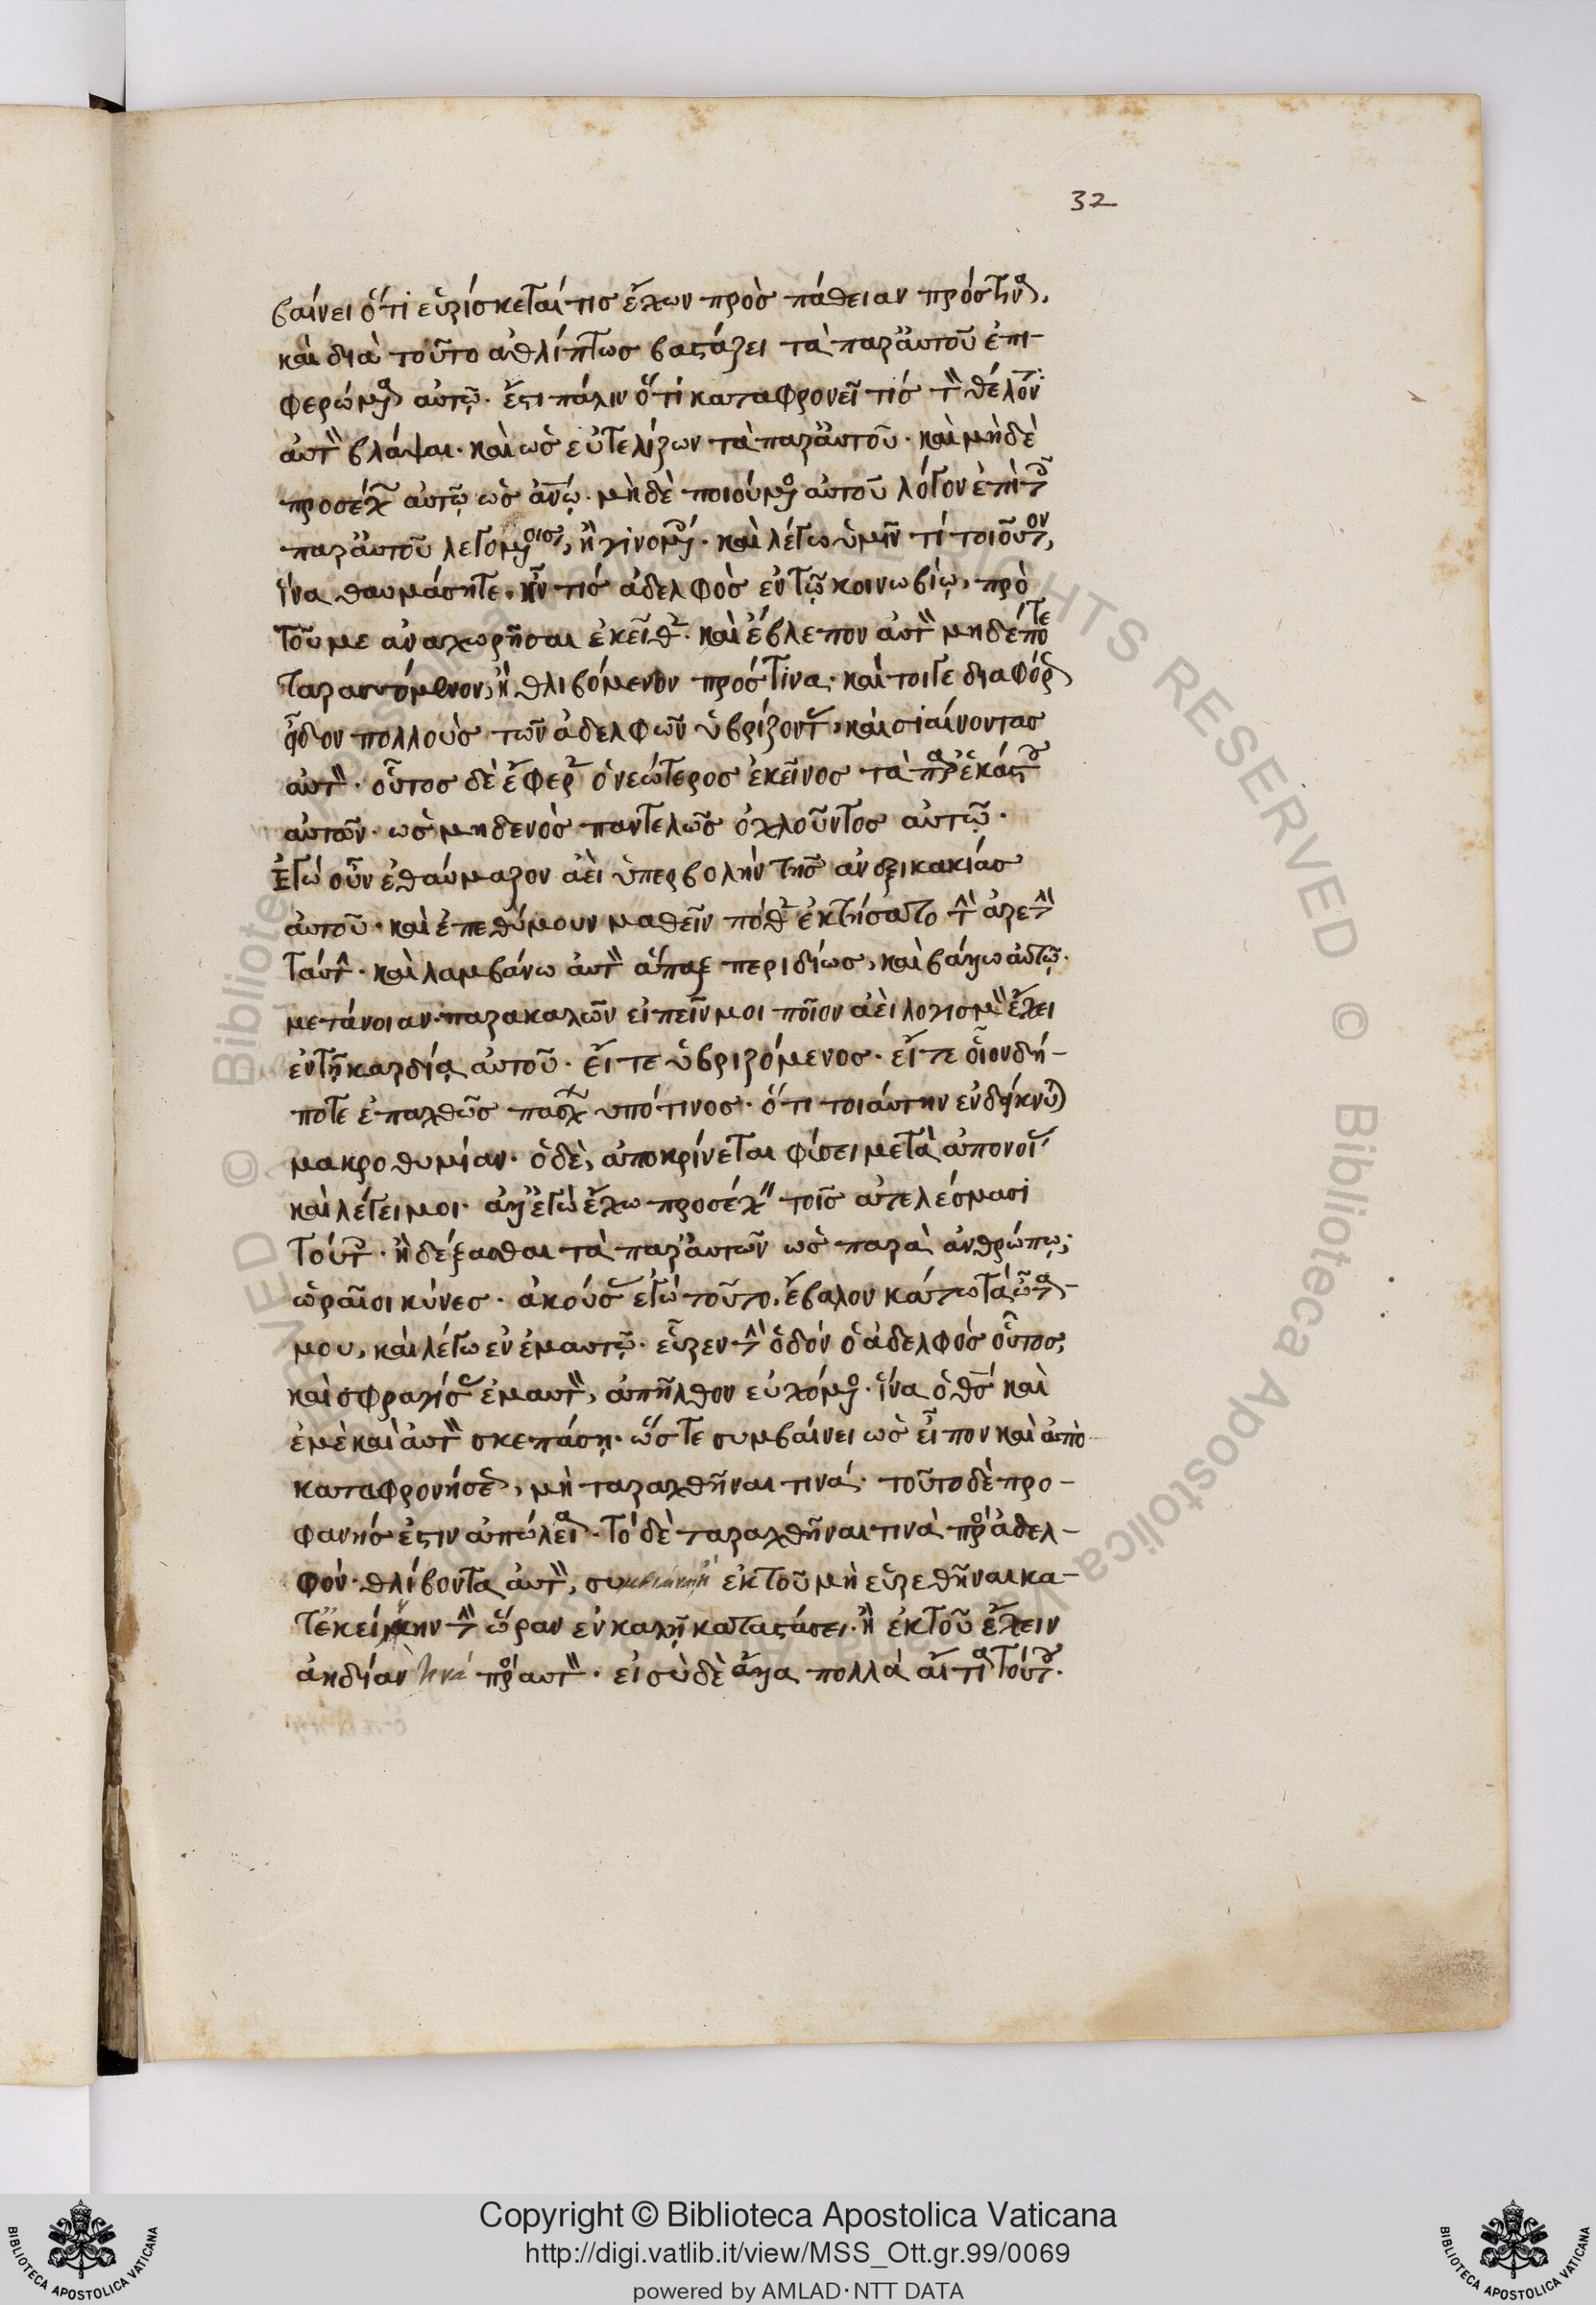 32
βαίνει ὅτι εὑρίσκεταί τις ἔχων προσπάθειαν πρός τινα,
καὶ διὰ τοῦτο ἀθλίπτως βαστάζει τὰ παρ' αὐτοῦ ἐπι-
φερόμενα αὐτῷ. ἔστι πάλιν ὅτι καταφρονεῖ τις τὸν θέλοντα
αὐτὸν βλάψαι. καὶ ὡς εὐτελίζων τὰ παρ' αὐτοῦ. καὶ μηδὲ
προσέχειν αὐτῷ ὡς ἀνῷ. μηδὲ ποιούμενος αὐτοῦ λόγον ἐπὶ τοῖς
παρ' αὐτοῦ λεγομένοις, ἢ γινομένοις. καὶ λέγω ὑμῖν τί τοιοῦτον,
ἵνα θαυμάσητε. ἦν τις ἀδελφὸς ἐν τῷ κοινωβίῳ, πρὸ
τοῦ με ἀναχωρῆσαι ἐκεῖθεν. καὶ ἔβλεπον αὐτὸν μηδέποτε
ταρασσόμενον, ἢ θλιβόμενον πρός τινα. καίτοιγε διαφόρως
εἶδον πολλοὺς τῶν ἀδελφῶν ὑβρίζοντας, καὶ σιαίνοντας
αὐτὸν. οὗτος δὲ ἔφερεν ὁ νεώτερος ἐκεῖνος τὰ παρὰ ἑκάστου
αὐτῶν. ὡς μηδενὸς παντελῶς ὀχλοῦντος αὐτῷ.
Ἐγὼ οὖν ἐθαύμαζον ἀεὶ ὑπερβολὴν τῆς ἀνεξικακίας
αὐτοῦ. καὶ ἐπεθύμουν μαθεῖν πόθεν ἐκτήσατο τὴν ἀρετὴν
ταύτην. καὶ λαμβάνω αὐτὸν ἅπαξ περιδίως, καὶ βάλλω αὐτῷ.
μετάνοιαν. παρακαλῶν εἰπεῖν μοι ποῖον ἀεὶ λογισμὸν ἔχει
ἐν τῇ καρδίᾳ αὐτοῦ. εἴτε ὑβριζόμενος. εἴτε οἷον δή-
ποτε ἐπαχθῶς πάσχων ὑπό τινος. ὅτι τοιαύτην ἐνδείκνυται
μακροθυμίαν. ὁ δὲ, ἀποκρίνεται φύσει μετὰ ἀπονοίας
καὶ λέγει μοι. ἀλλ' ἐγὼ ἔχω προσέχειν τοῖς ἀτελέσμασι
τούτοις. ἢ δέξασθαι τὰ παρ' αὐτῶν ὡς παρὰ ἀνθρώπω;
ὡραῖοι κύνες. ἀκούσας ἐγὼ τοῦτο, ἔβαλον κάτω τὰ ὦτα
μου, καὶ λέγω ἐν ἐμαυτῷ. εὗρεν τὴν ὁδόν ὁ ἀδελφὸς οὗτος,
καὶ σφραγίσας ἐμαυτὸν, ἀπῆλθον εὐχόμενος. ἵνα ὁ θς καὶ
ἐμὲ καὶ αὐτὸν σκεπάσῃ. ὥστε συμβαίνει ὡς εἶπον καὶ ἀπὸ
καταφρονήσεως, μὴ ταραχθῆναι τινά. τοῦτο δὲ προ-
φανής ἐστιν ἀπώλεια. Τὸ δὲ ταραχθῆναι τινὰ πρὸς ἀδελ-
φόν. θλίβοντα αὐτὸν, συμβαίνει ἐκ τοῦ μὴ εὑρεθῆναι κα-
τ' ἐκείνην τὴν ὥραν ἐν καλῇ καταστάσει. ἢ ἐκ τοῦ ἔχειν
ἀηδίαν τινά πρὸς αὐτὸν. εἰσὶ δὲ ἄλλα πολλὰ αἴτια τούτου.
Copyright © Biblioteca Apostolica Vaticana
http://digi.vatlib.it/view/MSS_Ott.gr.99/0069
powered by AMLAD·NTT DATA